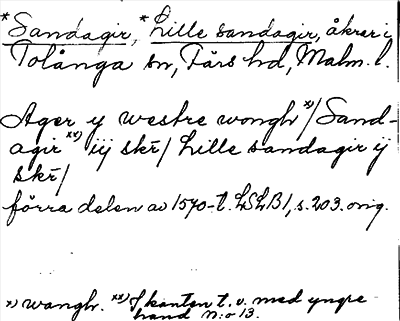 *Sandagir, *Lille sandagir, åkrar i
Tolånga sn, Färs hd, Malm. l.
Ager y westre wongh x)/Sand-
agir xx) iij skr̄/ Lille sandagir ij
skr̄/
förra delen av 1570-t. LSLB1, s. 203. orig.
x) wangh. xx) I kanten t. v. med yngre
hand n:o 13.